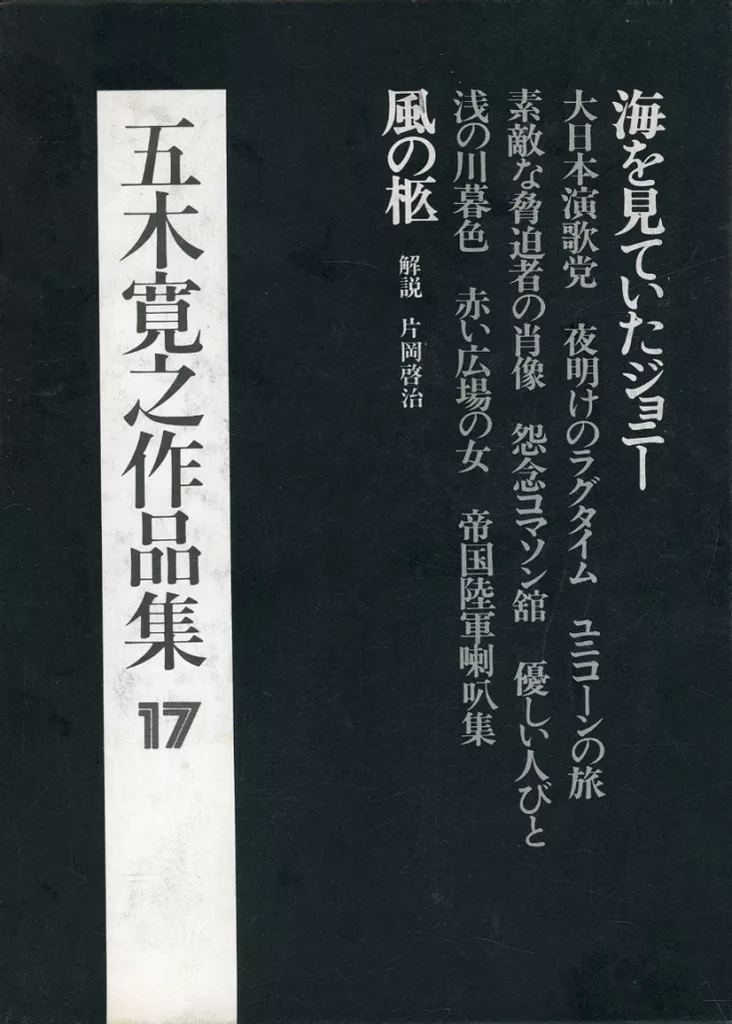 海を見ていたジョニー
大日本演歌党　夜明けのラグタイム　ユニコーンの旅
素敵な脅迫者の肖像　怨念コマソン館　優しい人びと
浅の川暮色　赤い広場の女　帝国陸軍喇叭集
風の柩
解説　片岡啓治
五木寛之作品集 17